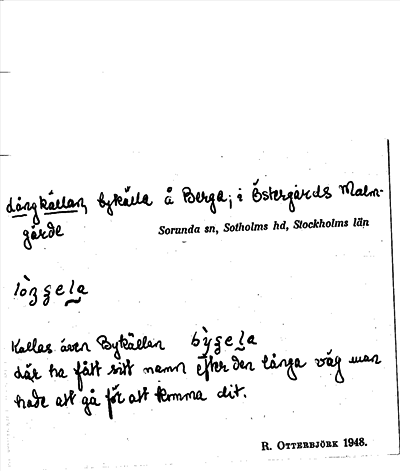 Långkällan, bykälla å Berga; i Östergårds Malm-
gärde
Sorunda sn, Sotholms hd, Stockholms län
Kallas även Bykällan
där ha fått sitt namn efter den långa väg man
hade att gå för att komma dit.
R. OTTERBJÖRK 1948.